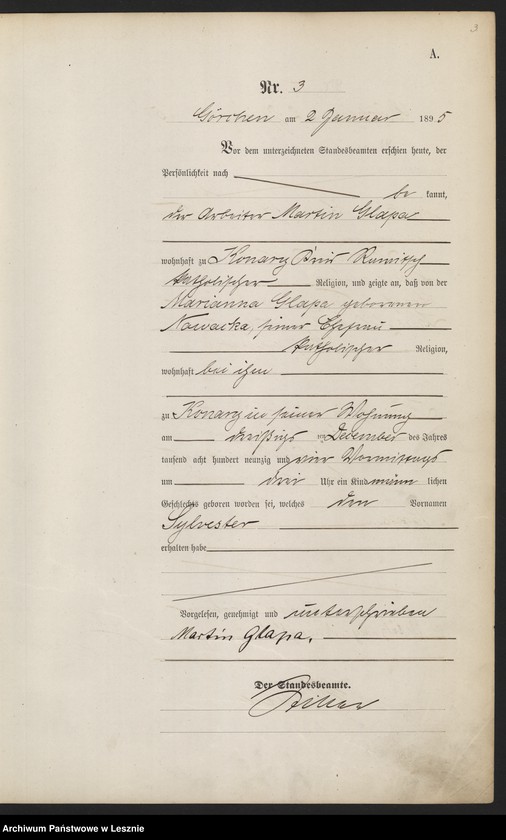 3
A.
Nr. 3
Görchen am 2 Januar 1895
Vor dem unterzeichneten Standesbeamten erschien heute, der
Persönlichkeit nach
be kannt,
der Arbeiter Martin Glapa
wohnhaft zu Konary Kreis Rawitsch
katholischer Religion, und zeigte an, daß von der
Marianna Glapa geborenen
Nowacka, seiner Ehefrau
katholischer Religion,
wohnhaft bei ihm
zu Konary in seiner Wohnung
am dreißigs ten December des Jahres
tausend acht hundert neunzig und vier Vormittags
um drei Uhr ein Kind männ lichen
Geschlechts geboren worden sei, welches den Vornamen
Sylvester
erhalten habe
Vorgelesen, genehmigt und unterschrieben
Martin Glapa.
Der Standesbeamte.
Archiwum Państwowe w Lesznie